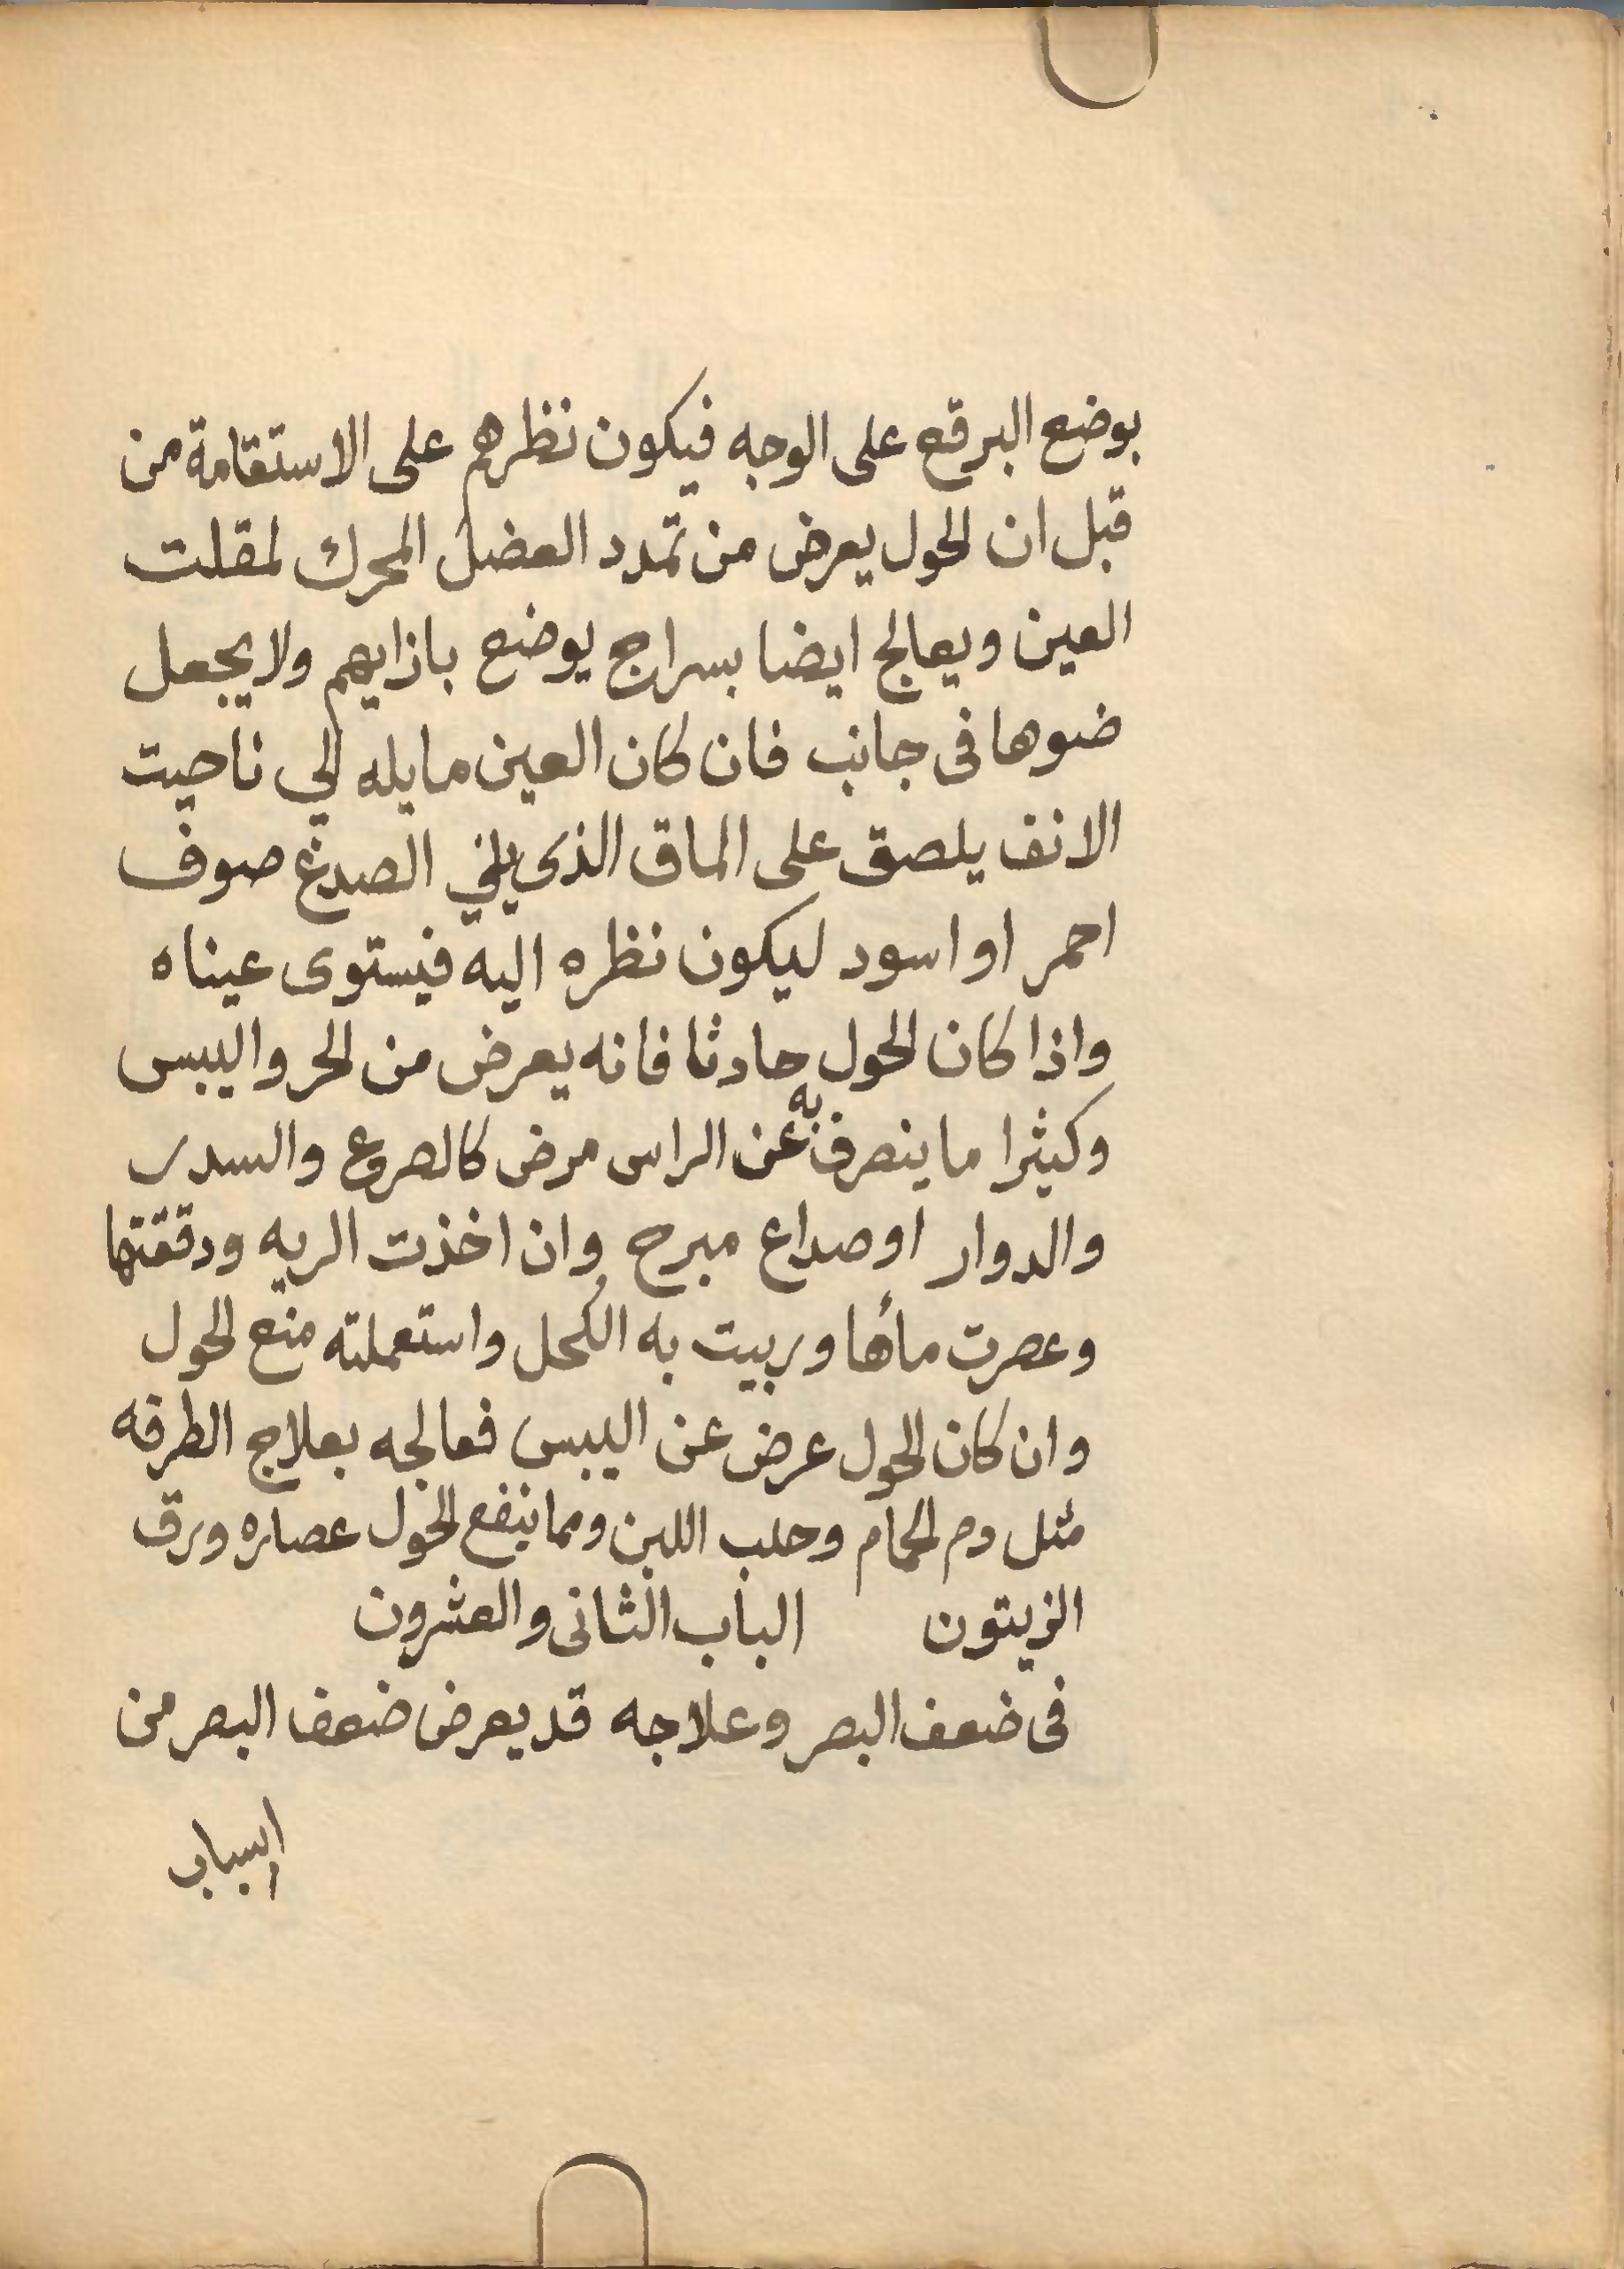 بوضع البرقع على الوجه فيكون نظرهم على الاستقامة من
قبل ان الحول يعرض من تمدد العضل المحرك لمقلت
العين ويعالج ايضا بسراج يوضع بازايهم ولا يجعل
ضوها فى جانب فان كان العين مايله الي ناحيت
الانف يلصق على الماق الذى يلي الصدغ صوف
احمر او اسود ليكون نظره اليه فيستوى عيناه
واذا كان الحول حادثا فانه يعرض من الحر واليبس
وكيثرا ما ينصرف به عن الراس مرض كالصروع والسدر
والدوار او صداع مبرح وان اخذت الريه ودققتها
وعصرت مأها وربيت به الكحل واستعملته منع الحول
وان كان الحول عرض عن اليبس فعالجه بعلاج الطرفه
مثل دم الحمام وحلب اللبن ومما ينفع الحول عصاره ورق
الزيتون الباب الثانى والعشرون
فى ضعف البصر وعلاجه قد يعرض ضعف البصر من
اسباب